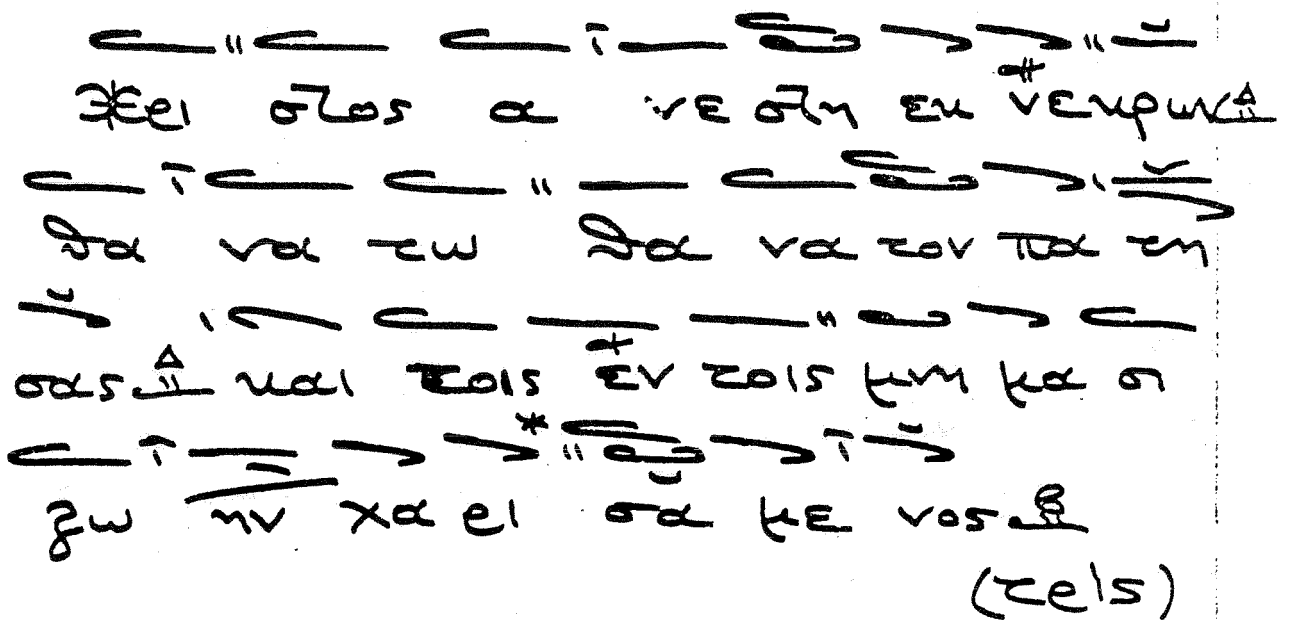 Χρι στος α νε στη εκ νε κρων
θα να τω θα να τον πα τη
σας και τοις εν τοις μνη μα σι
ζω ην χα ρι σα με νος
(τρις)